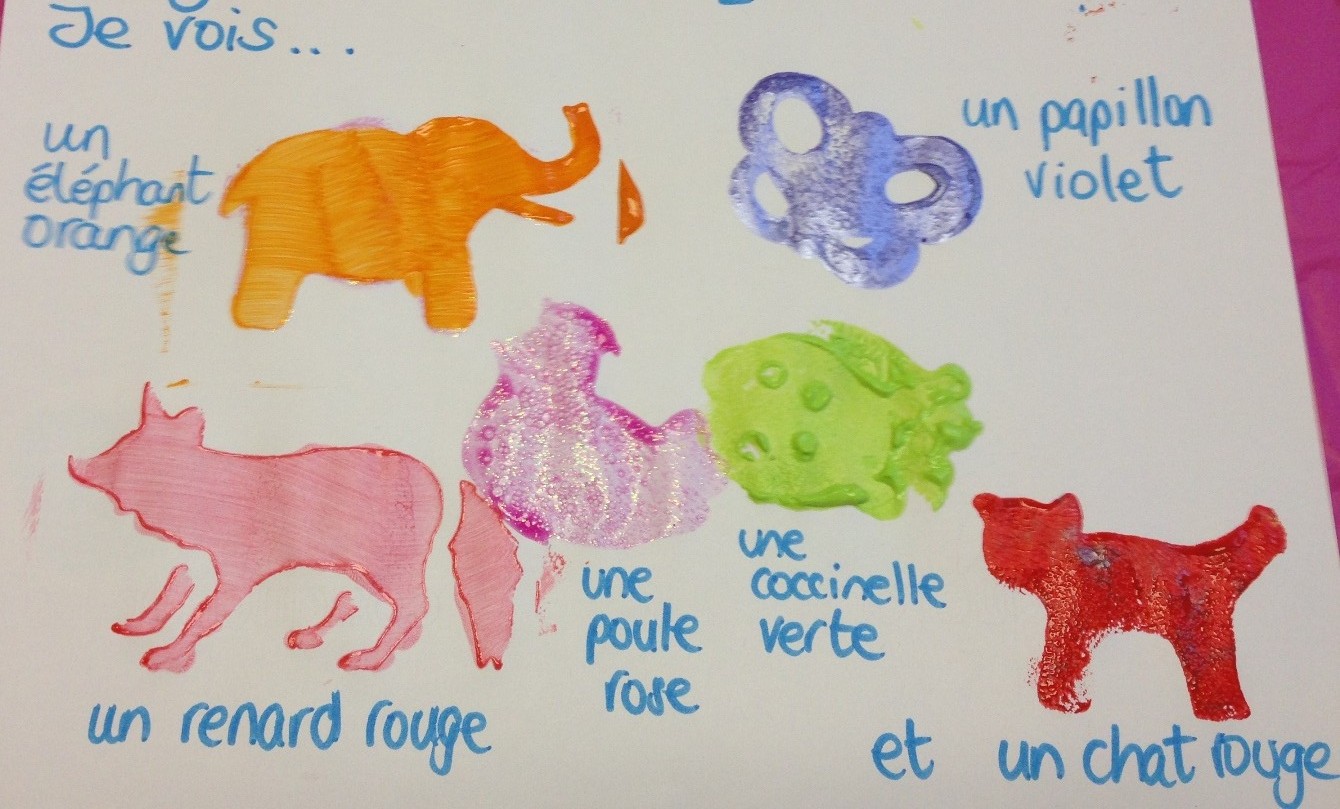 Je vois...
un
éléphant
orange
un papillon
violet
une
poule
rose
une
coccinelle
verte
un renard rouge
et un chat rouge